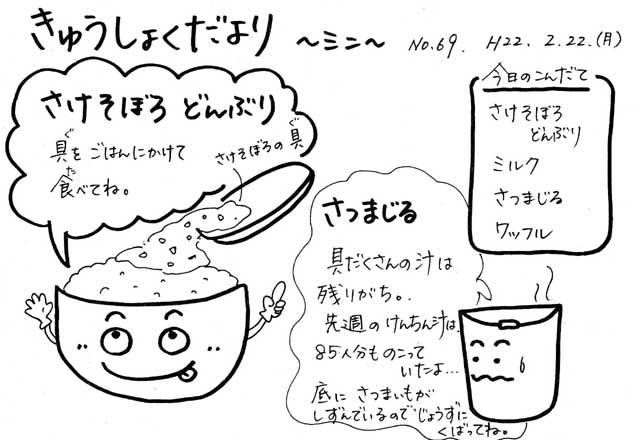 きゅうしょくだより 〜ミニ〜 No.69. H22. 2.22.(月)
さけそぼろ どんぶり
具をごはんにかけて
食べてね。
ぐ
た
さけそぼろの具
ぐ
今日のこんだて
きょう
さけそぼろ
どんぶり
ミルク
さつまじる
ワッフル
さつまじる
具だくさんの汁は
残りがち。
先週のけんちん汁は、
85人分ものこって
いたよ…
底に さつまいもが
しずんでいるので じょうずに
くばってね。